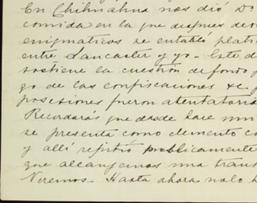 En Chihuahua nos dió Do
comida en la que despues des
enigmaticos se entabló platic
entre Lancaster y yo. Este d
sostiene la cuestión de fondo y
go de las confiscaciones &c. p
posesiones fueron atentatoria
Recordarás que desde hace
se presenta como elemento co
y allí repitió publicamente
que alcanzemos una trans
Veremos. Hasta ahora no lo h